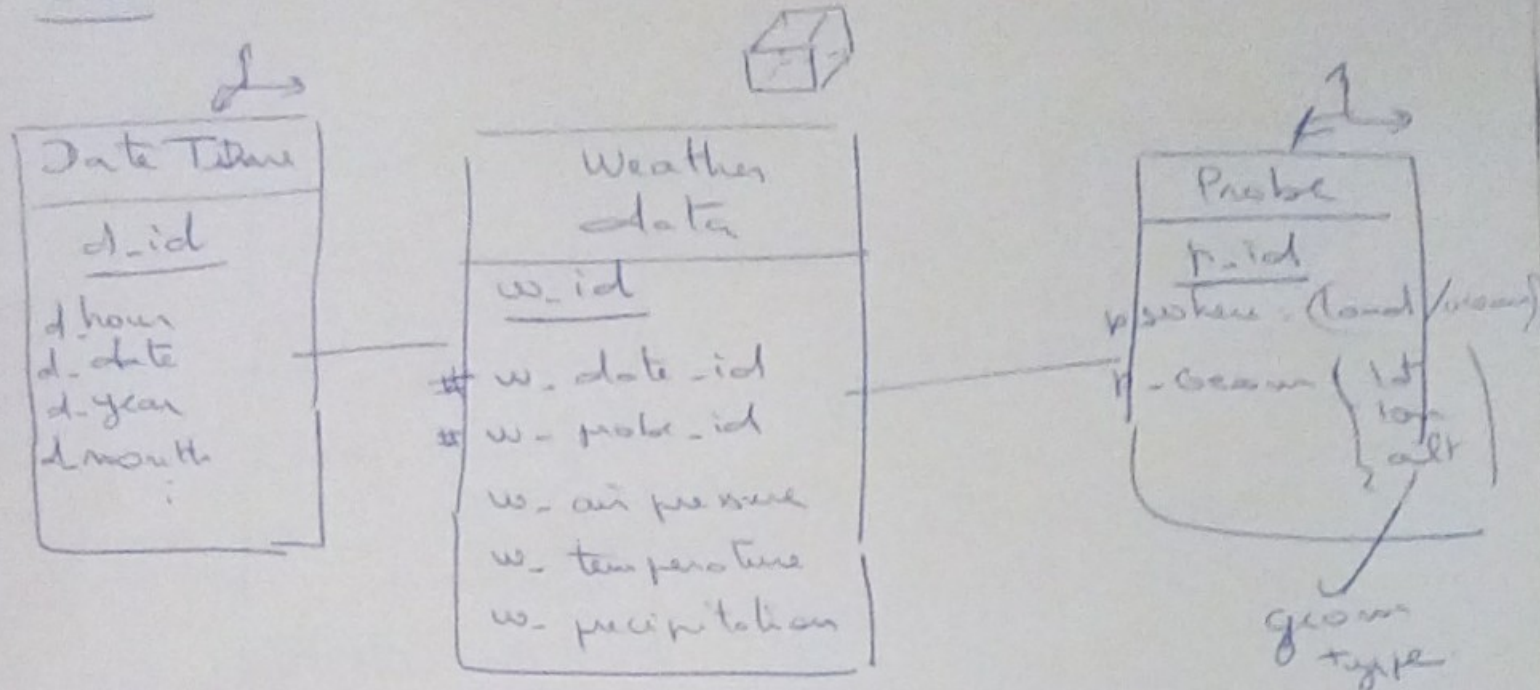 Date Time
d_id
d_hour
d_date
d_year
d_month
:
Weather
data
w_id
# w_date_id
# w_probe_id
w_air pressure
w_temperature
w_precipitation
Probe
p_id
p_where (land/
p_Geom ( lat
lon
alt )
geom
type